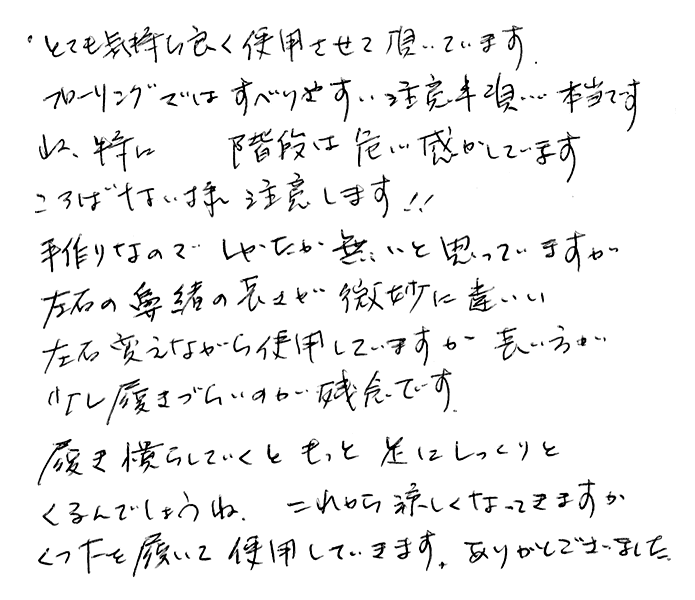 ・とても気持ち良く使用させて頂いています.
フローリングではすべりやすい注意事項… 本当です
ね、特に 階段は危い感がしています
ころばない様 注意します!!
手作りなので しかたが無いと思っていますが
左右の鼻緒の長さが微妙に違いい
左右変えながら使用していますが 長い方が
少し履きづらいのが残念です.
履き慣らしていくと もっと 足にしっくりと
くるんでしょうね. これから涼しくなってきますが
くつ下を履いて使用していきます. ありがとうございました.